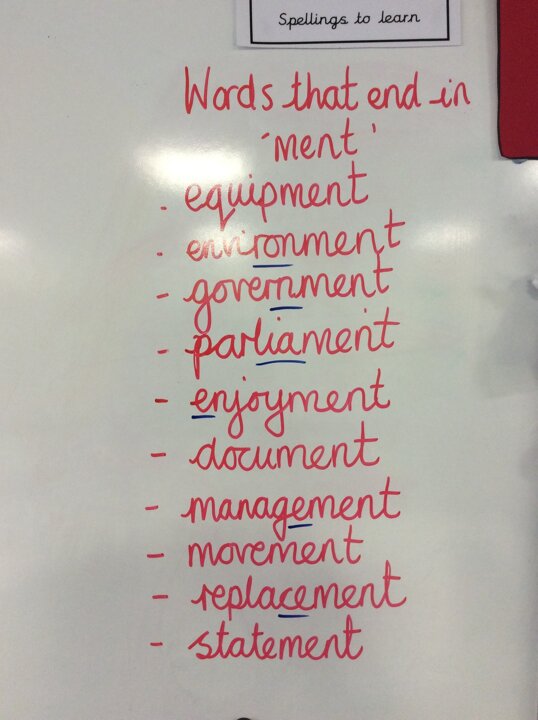 Spellings to learn
Words that end in
'ment'
. equipment
. environment
- government
- parliament
- enjoyment
- document
- management
- movement
- replacement
- statement